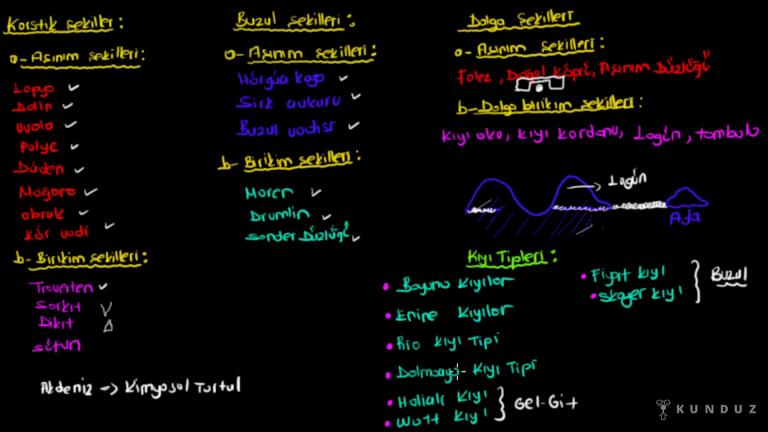 Karstik şekiller:
a- Aşınım şekilleri:
Lapya
Dolin
uvala
Polye
Düden
Mağara
obruk
kör vadi
b- Birikim şekilleri:
Traverten
Sarkıt
Dikit
sütun
Akdeniz -> Kimyasal Tortul
Buzul şekilleri:
a- Aşınım şekilleri:
Hörgüç kaya
Sirk çukuru
Buzul vadisi
b- Birikim şekilleri:
Moren
Drumlin
Sander Düzlüğü
Dalga şekilleri
a- Aşınım şekilleri:
Falez, Doğal köprü, Aşınım Düzlüğü
b- Dalga birikim şekilleri:
Kıyı oku, kıyı kordonu, Lagün, tombolo
Lagün
Ada
Kıyı Tipleri:
• Boyuna kıyılar
• Enine kıyılar
• Ria kıyı Tipi
• Dalmaçya kıyı Tipi
• Haliçli kıyı
• Watt kıyı
Gel-Git
• Fiyort kıyı
• Skayer kıyı
Buzul
KUNDUZ